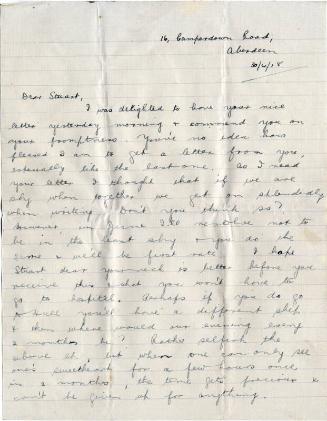 16, Camperdown Road,
Aberdeen
30/4/18
Dear Stuart,
I was delighted to have your nice
letter yesterday morning & commend you on
your promptness. You've no idea how
pleased I am to get a letter from you,
especially like the last one. As I read
your letter I thought that if we are
shy when together, we get on splendidly
when writing. Don't you think so?
However, in June I'll resolve not to
be in the least shy & you do the
same & we'll be first rate. I hope
Stuart dear your neck is better before you
receive this & that you won't have to
go to hospital. Perhaps if you do go
you'll have a different ship
& then where would our evening every
2 months be? Rather selfish the
above eh, but when one can only see
one's sweetheart for a few hours once
in 2 months, the time gets precious &
can't be given up for anything.